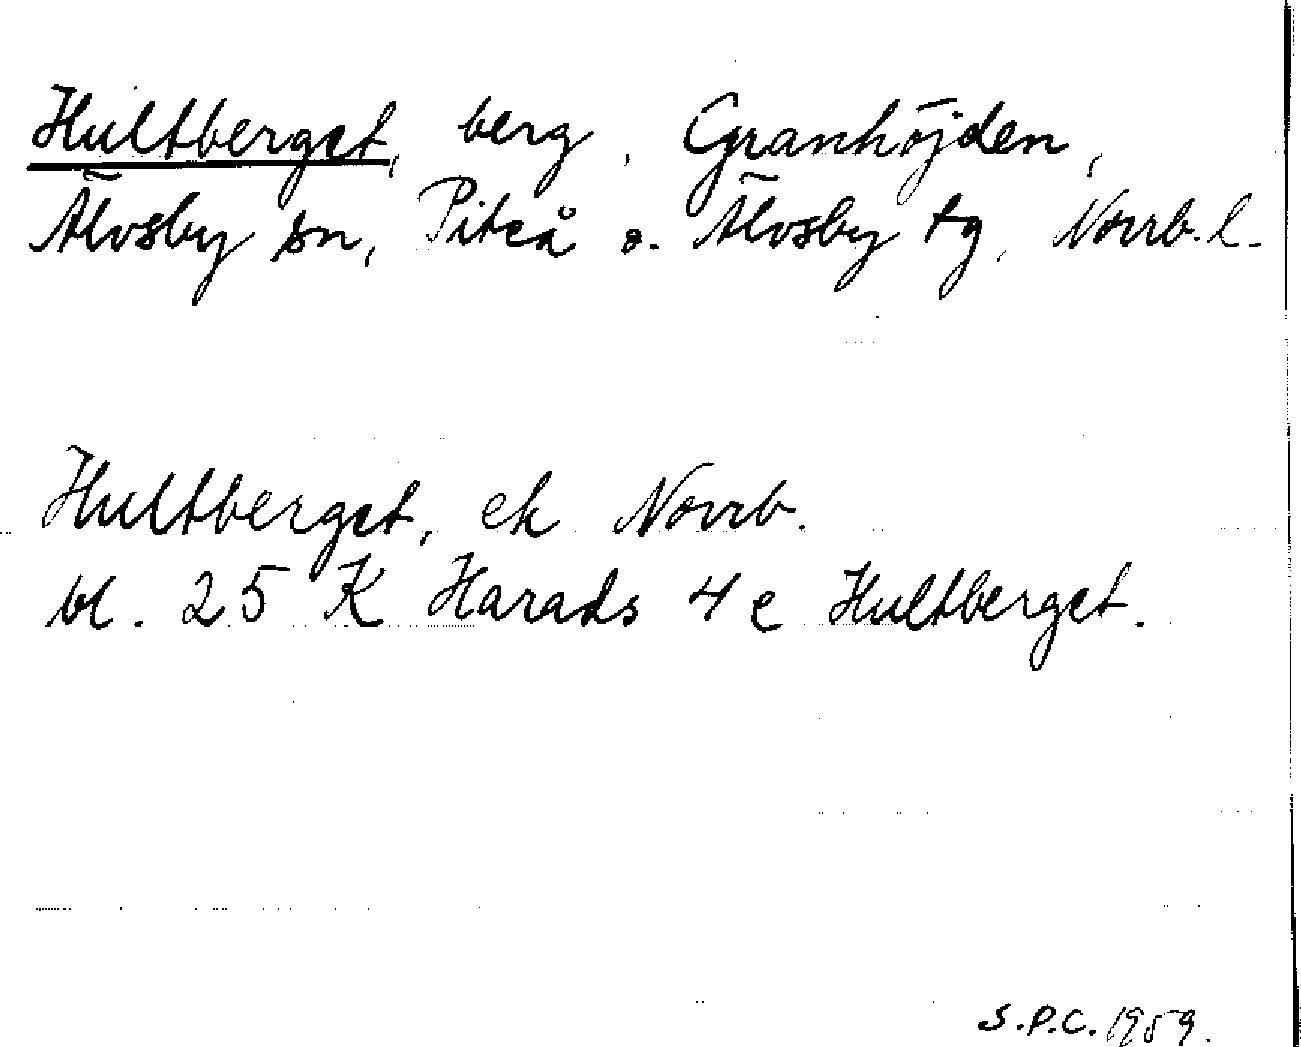 Hultberget, berg, Granhöjden,
Älvsby sn, Piteå o. Älvsby tg, Norrb. l.
Hultberget, ek Norrb.
bl. 25 K Harads 4 e Hultberget.
S.P.C. 1959.